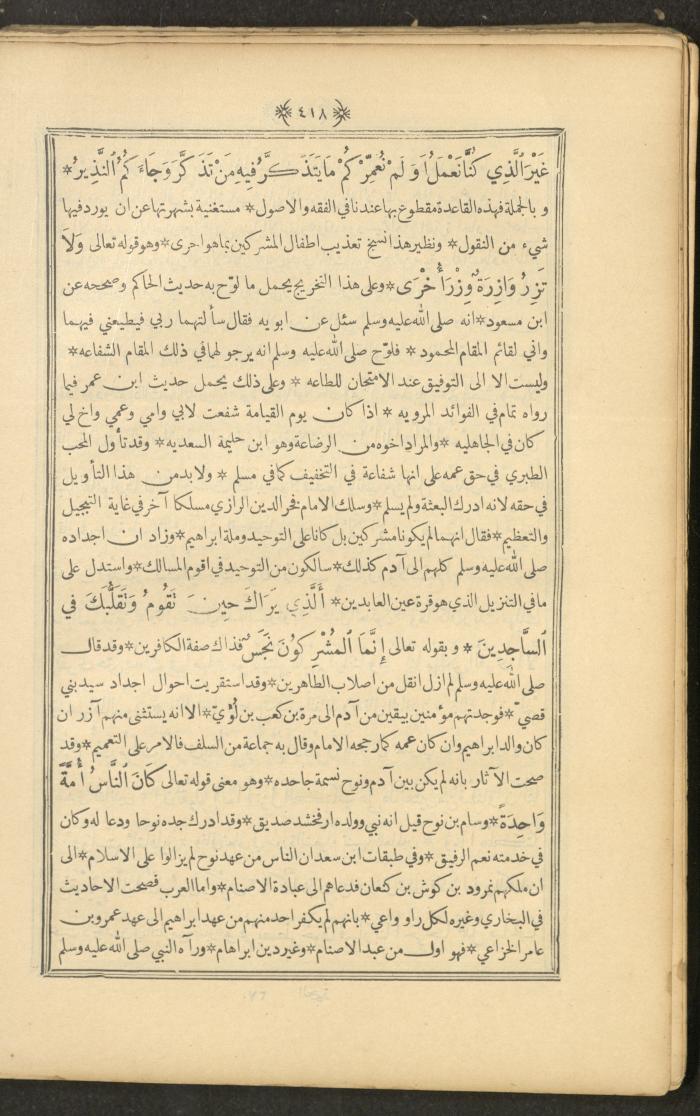 ٤١٨
غَيْرَ ٱلَّذِي كُنَّا نَعْمَلُ أَوَ لَمْ نُعَمِّرْ كُمْ مَا يَتَذَكَّرُ فِيهِ مَنْ تَذَكَّرَ وَجَاءَ كُمُ ٱلنَّذِيرُ *
و بالجملة فهذه القاعدة مقطوع بها عندنا في الفقه والاصول * مستغنية بشهرتها عن ان يورد فيها
شيء من النقول * ونظير هذا نسخ تعذيب اطفال المشركين بما هو احرى * وهو قوله تعالى وَلاَ
تَزِرُ وَازِرَةٌ وِزْرَ أُخْرَى * وعلى هذا التخريج يحمل ما لوّح به حديث الحاكم وصححه عن
ابن مسعود * انه صلى الله عليه وسلم سئل عن ابويه فقال سألتهما ربي فيطيعني فيهما
واني لقائم المقام المحمود * فلوّح صلى الله عليه وسلم انه يرجو لهما في ذلك المقام الشفاعه *
وليست الا الى التوفيق عند الامتحان للطاعه * وعلى ذلك يحمل حديث ابن عمر فيما
رواه تمام في الفوائد المرويه * اذا كان يوم القيامة شفعت لابي وامي وعمي واخ لي
كان في الجاهليه * والمراد اخوه من الرضاعة وهو ابن حليمة السعديه * وقد تأول المحب
الطبري في حق عمه على انها شفاعة في التخفيف كما في مسلم * ولا بد من هذا التأويل
في حقه لانه ادرك البعثة ولم يسلم * وسلك الامام فخر الدين الرازي مسلكا آخر في غاية التبجيل
والتعظيم * فقال انهما لم يكونا مشركين بل كانا على التوحيد وملة ابراهيم * وزاد ان اجداده
صلى الله عليه وسلم كلهم الى آدم كذلك * سالكون من التوحيد في اقوم المسالك * واستدل على
ما في التنزيل الذي هو قرة عين العابدين * أَلَّذِي يَرَاكَ حِينَ تَقُومُ وَتَقَلُّبَكَ فِي
ٱلسَّاجِدِينَ * و بقوله تعالى إِنَّمَا ٱلْمُشْرِكُونَ نَجَسٌ فذاك صفة الكافرين * وقد قال
صلى الله عليه وسلم لم ازل انقل من اصلاب الطاهرين * وقد استقريت احوال اجداد سيد بني
قصيّ * فوجدتهم مؤمنين بيقين من آدم الى مرة بن كعب بن لُؤيّ * الا انه يستثنى منهم آزر ان
كان والد ابراهيم وان كان عمه كما رجحه الامام وقال به جماعة من السلف فالامر على التعميم * وقد
صحت الآثار بانه لم يكن بين آدم ونوح نسمة جاحده * وهو معنى قوله تعالى كَانَ ٱلنَّاسُ أُمَّةً
وَاحِدَةً * وسام بن نوح قيل انه نبي وولده ارفخشد صديق * وقد ادرك جده نوحا ودعا له وكان
في خدمته نعم الرفيق * وفي طبقات ابن سعد ان الناس من عهد نوح لم يزالوا على الاسلام * الى
ان ملكهم نمرود بن كوش بن كنعان فدعاهم الى عبادة الاصنام * واما العرب فصحت الاحاديث
في البخاري وغيره لكل راو واعي * بانهم لم يكفر احد منهم من عهد ابراهيم الى عهد عمرو بن
عامر الخزاعي * فهو اول من عبد الاصنام * وغير دين ابراهام * ورآه النبي صلى الله عليه وسلم